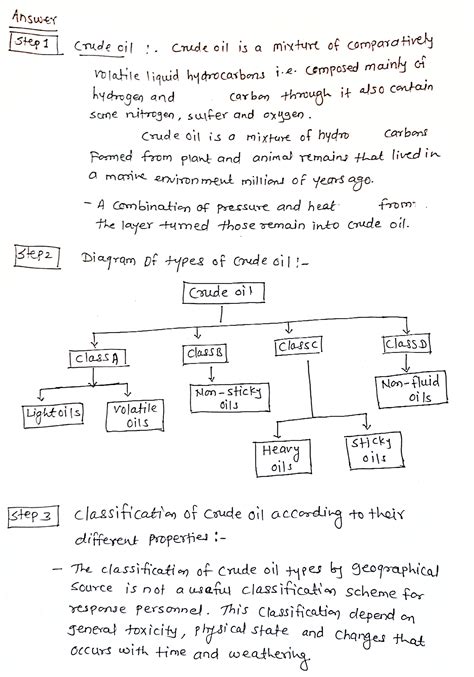 Answer
Step 1 Crude oil :. Crude oil is a mixture of comparatively
volatile liquid hydrocarbons i.e. composed mainly of
hydrogen and carbon through it also contain
some nitrogen, sulfer and oxygen.
Crude oil is a mixture of hydro carbons
Formed from plant and animal remains that lived in
a marine environment millions of years ago.
- A combination of pressure and heat from.
the layer turned those remain into crude oil.
Step2 Diagram of types of crude oil :-
Crude oil
Class A Class B Class C Class D
Light oils Volatile oils Non-sticky oils Heavy oils Sticky oils Non-fluid oils
Step 3 Classification of Crude oil according to their
different properties :-
- The classification of crude oil types by geographical
Source is not a useful classification scheme for
response personnel. This classification depend on
general toxicity, physical state and changes that
occurs with time and weathering.